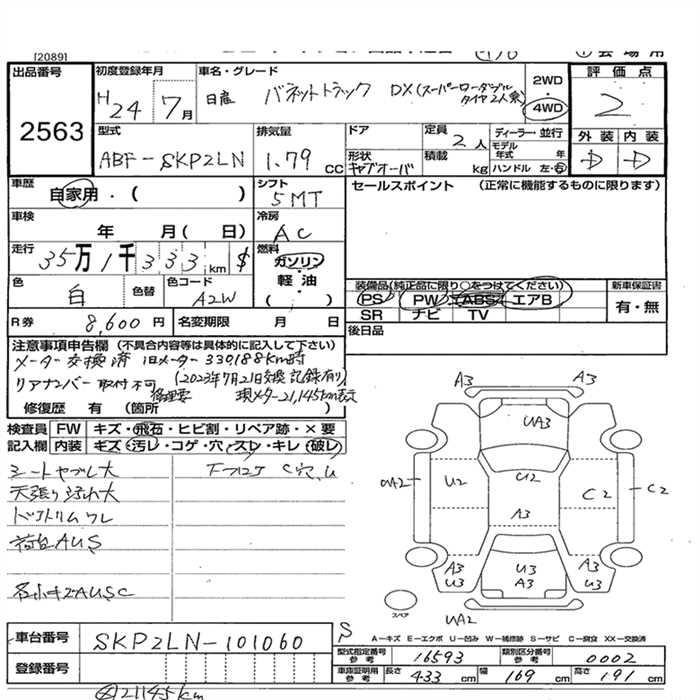 [2089]
出品番号
2563
初度登録年月
H24年7月
車名・グレード
日産 バネットトラック DX(スーパーローダブルタイヤ2人乗)
2WD・4WD
評価点
2
外装 内装
D D
型式
ABF-SKP2LN
排気量
1.79cc
ドア
形状
キャブオーバ
定員 2人
積載 kg
ディーラー・並行
モデル年式 年
ハンドル 左・右
車歴
自家用・( )
シフト
5MT
セールスポイント (正常に機能するものに限ります)
車検
年 月( 日)
冷房
AC
走行
35万1千333km $
燃料
ガソリン・軽油・( )
色
白
色替
色コード
A2W
装備品(純正品に限り○をつけてください)
PS PW ABS エアB
SR ナビ TV
新車保証書
有・無
R券 8,600円
名変期限 月 日
後日品
注意事項申告欄(不具合内容等は具体的に記入して下さい)
メーター交換済 旧メーター330188km時
リアナンバー取付不可 (2023年7月21日交換記録有り)
修理要 現メーター21,145km表示
修復歴 有(箇所
検査員記入欄
FW キズ・飛石・ヒビ割・リペア跡・×要
内装 キズ・汚レ・コゲ・穴・スレ・キレ・破レ
シートヤブレ大
天張り汚れ大
ドアトリムワレ
荷台AUS
各小キズAUSC
下廻り C穴、U
A3 A3
UA3
UA2 U2 U2 C2 C2
A3
A3 U3 U3 A3 A3 U3
スペア
UA2
車台番号
SKP2LN-101060
S
A-キズ E-エクボ U-凹み W-補修跡 S-サビ C-腐食 XX-交換済
登録番号
型式指定番号参考 16593
類別区分番号参考 0002
車庫証明用参考 長さ433cm 幅169cm 高さ191cm
21145km